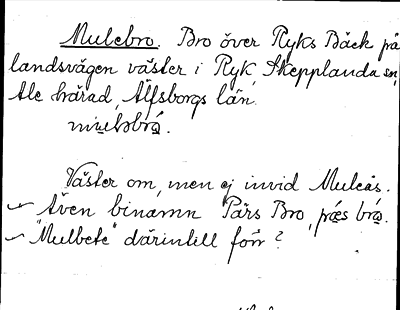 Mulebro. Bro över Ryks Bäck på
landsvägen väster i Ryk, Skepplanda sn,
Ale härad, Älfsborgs län.
Väster om, men ej invid Muleås.
Även binamn Pärs Bro, pæs brå.
"Mulbete" därintill förr?